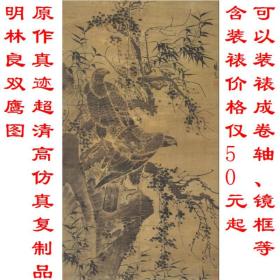 可以装裱成卷轴、镜框等
含装裱价格仅50元起
原作真迹超清高仿真复制品
明林良双鹰图